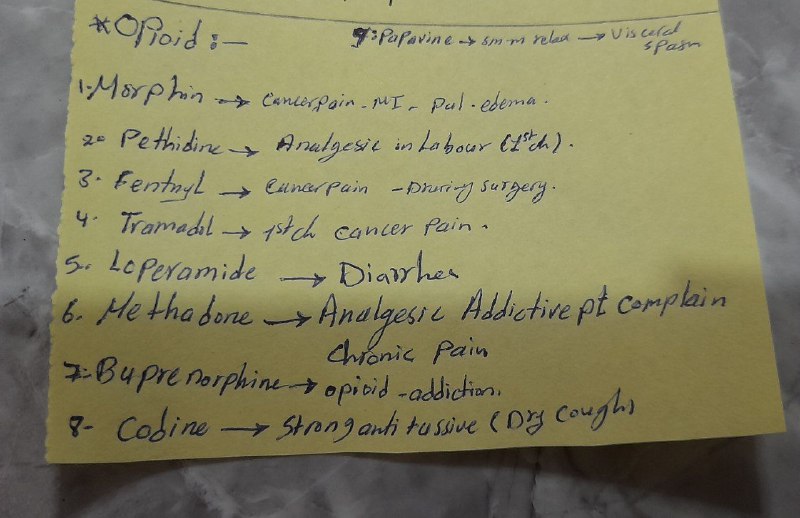 *Opioid :-
9: Papavine → sm.m relax → Visceral spasm
1. Morphin → Cancerpain - MI - pul.edema.
2. Pethidine → Analgesic in Labour (1st ch).
3. Fentnyl → Cancerpain - During surgery.
4. Tramadol → 1st ch cancer pain.
5. Loperamide → Diarrhea
6. Methadone → Analgesic Addictive pt complain
Chronic Pain
7. Buprenorphine → opioid -addiction.
8- Codine → Strong antitussive (Dry Cough)